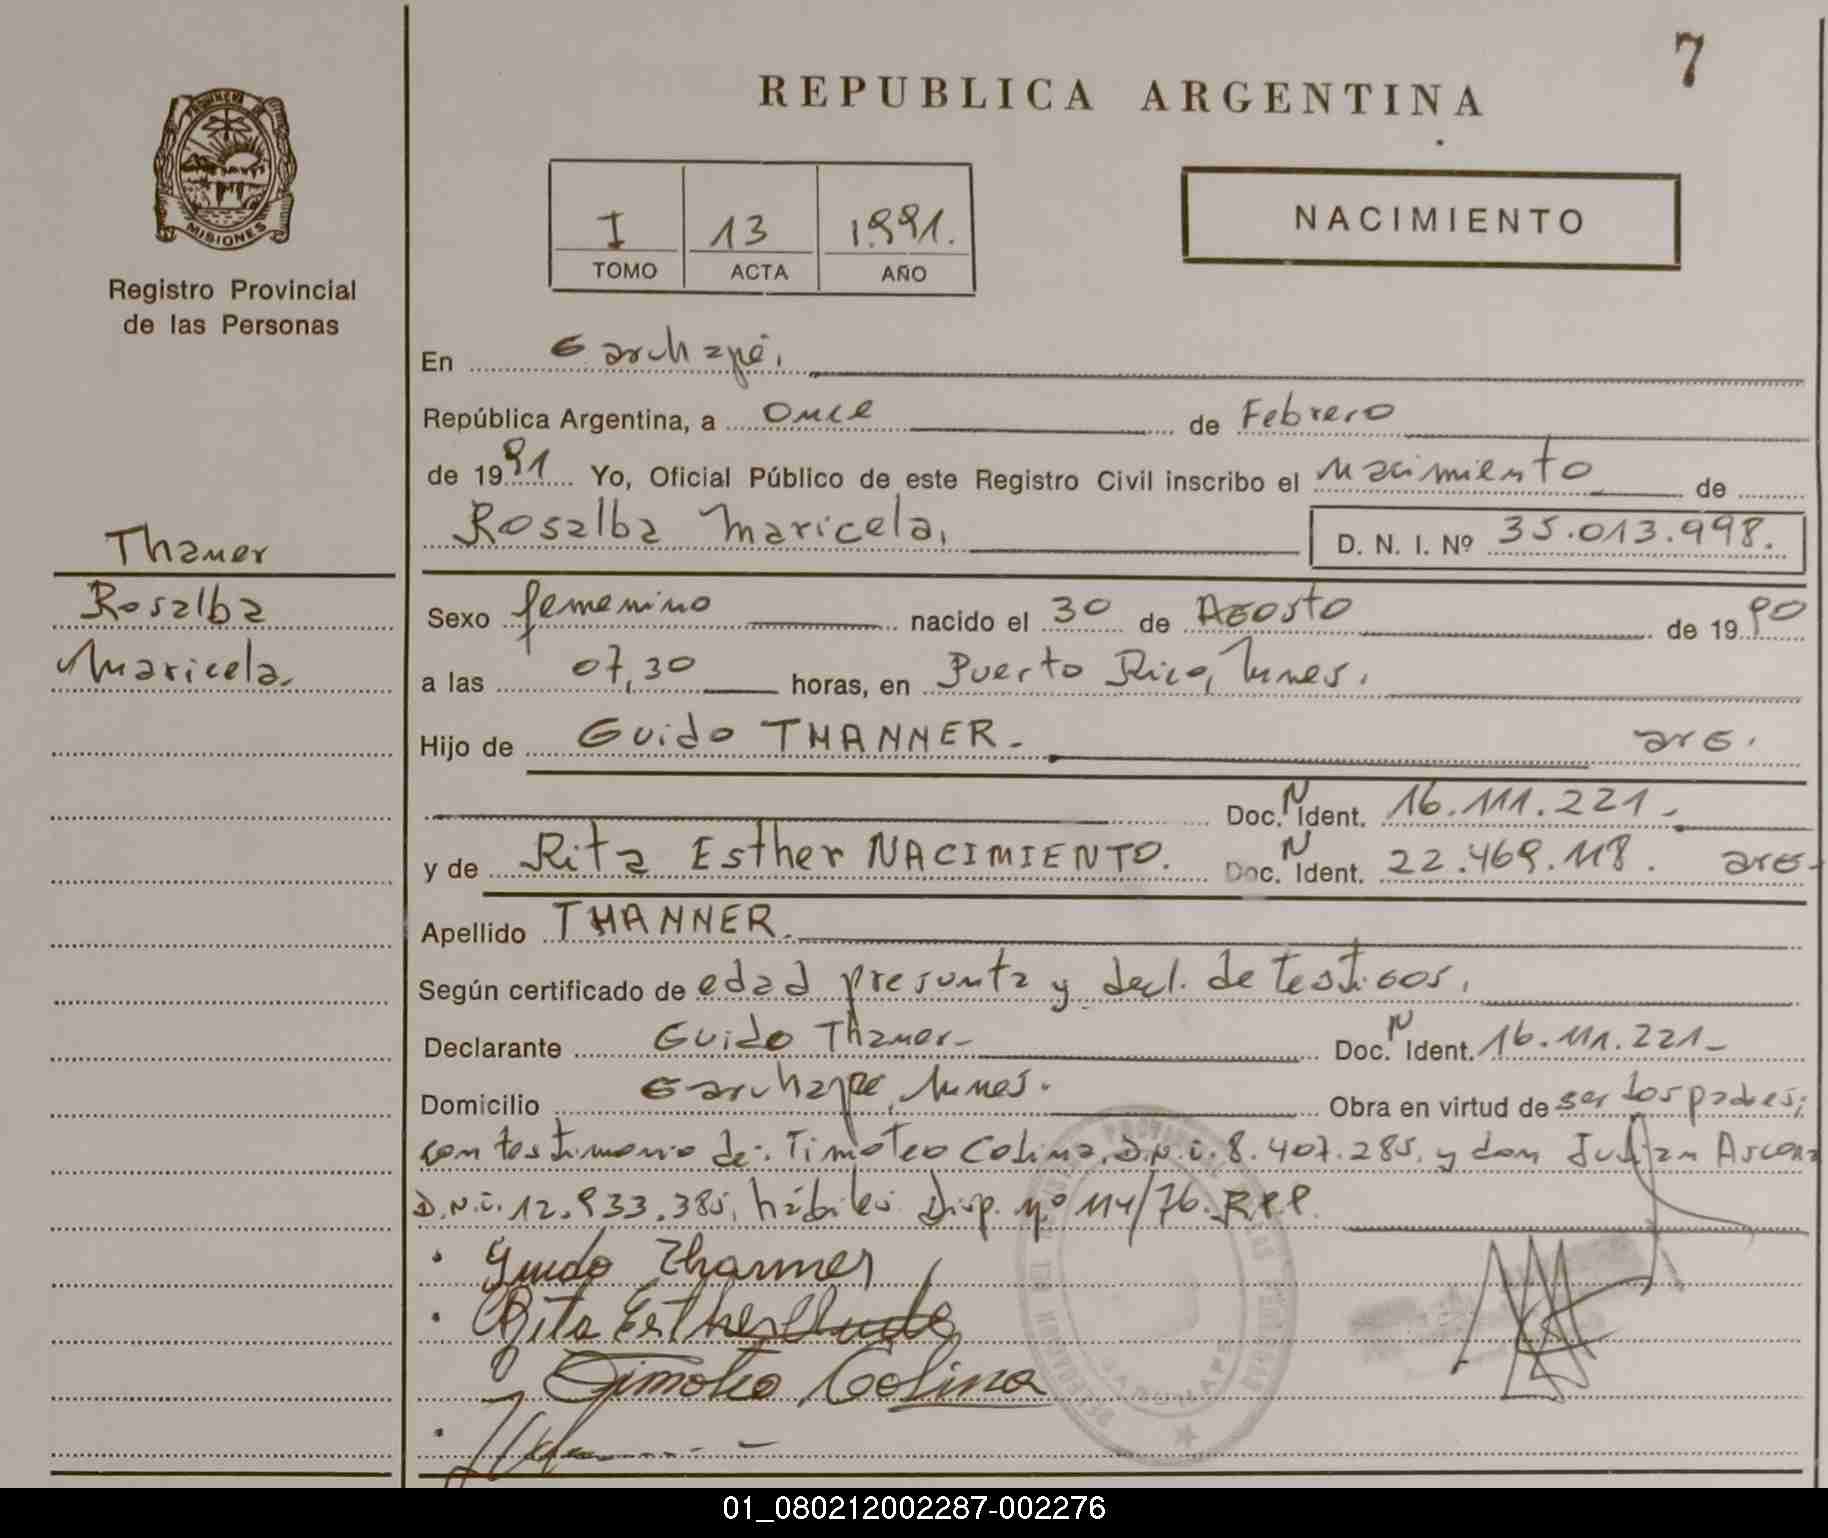 7
REPUBLICA ARGENTINA
PROVINCIA
MISIONES
Registro Provincial
de las Personas
I 13 1.991.
TOMO ACTA AÑO
NACIMIENTO
En Garuhapé.
República Argentina, a Once de Febrero
de 1991 Yo, Oficial Público de este Registro Civil inscribo el nacimiento de
Rosalba Maricela. D. N. I. Nº 35.013.998.
Thanner
Rosalba
Maricela.
Sexo femenino nacido el 30 de Agosto de 1990
a las 07,30 horas, en Puerto Rico, Mnes.
Hijo de Guido THANNER. arg.
Doc. N Ident. 16.111.221.
y de Rita Esther NACIMIENTO. Doc. N Ident. 22.469.118. arg.
Apellido THANNER.
Según certificado de edad presunta y decl. de testigos.
Declarante Guido Thanner Doc. N Ident. 16.111.221
Domicilio Garuhape, Mnes. Obra en virtud de ser los padres;
con testimonio de: Timoteo Colina, D.N.i. 8.407.285, y don
D.N.i. 12.933.385, hábiles Disp. nº 114/76. R.P.P.
Guido Thanner
Rita Esther
Timoteo Colina
01_080212002287-002276